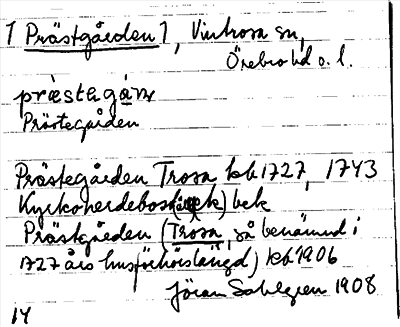 1 Prästgården 1, Vintrosa sn,
Örebro hd o. l.
præstega̱ṉ
Prästegården
Prästegården Trosa kb 1727, 1743
Kyrkoherdebost. (äv. ek) bek
Prästgården (Trosa, så benämnd i
1727 års husförhörslängd) kb 1906
Jöran Sahlgren 1908
14